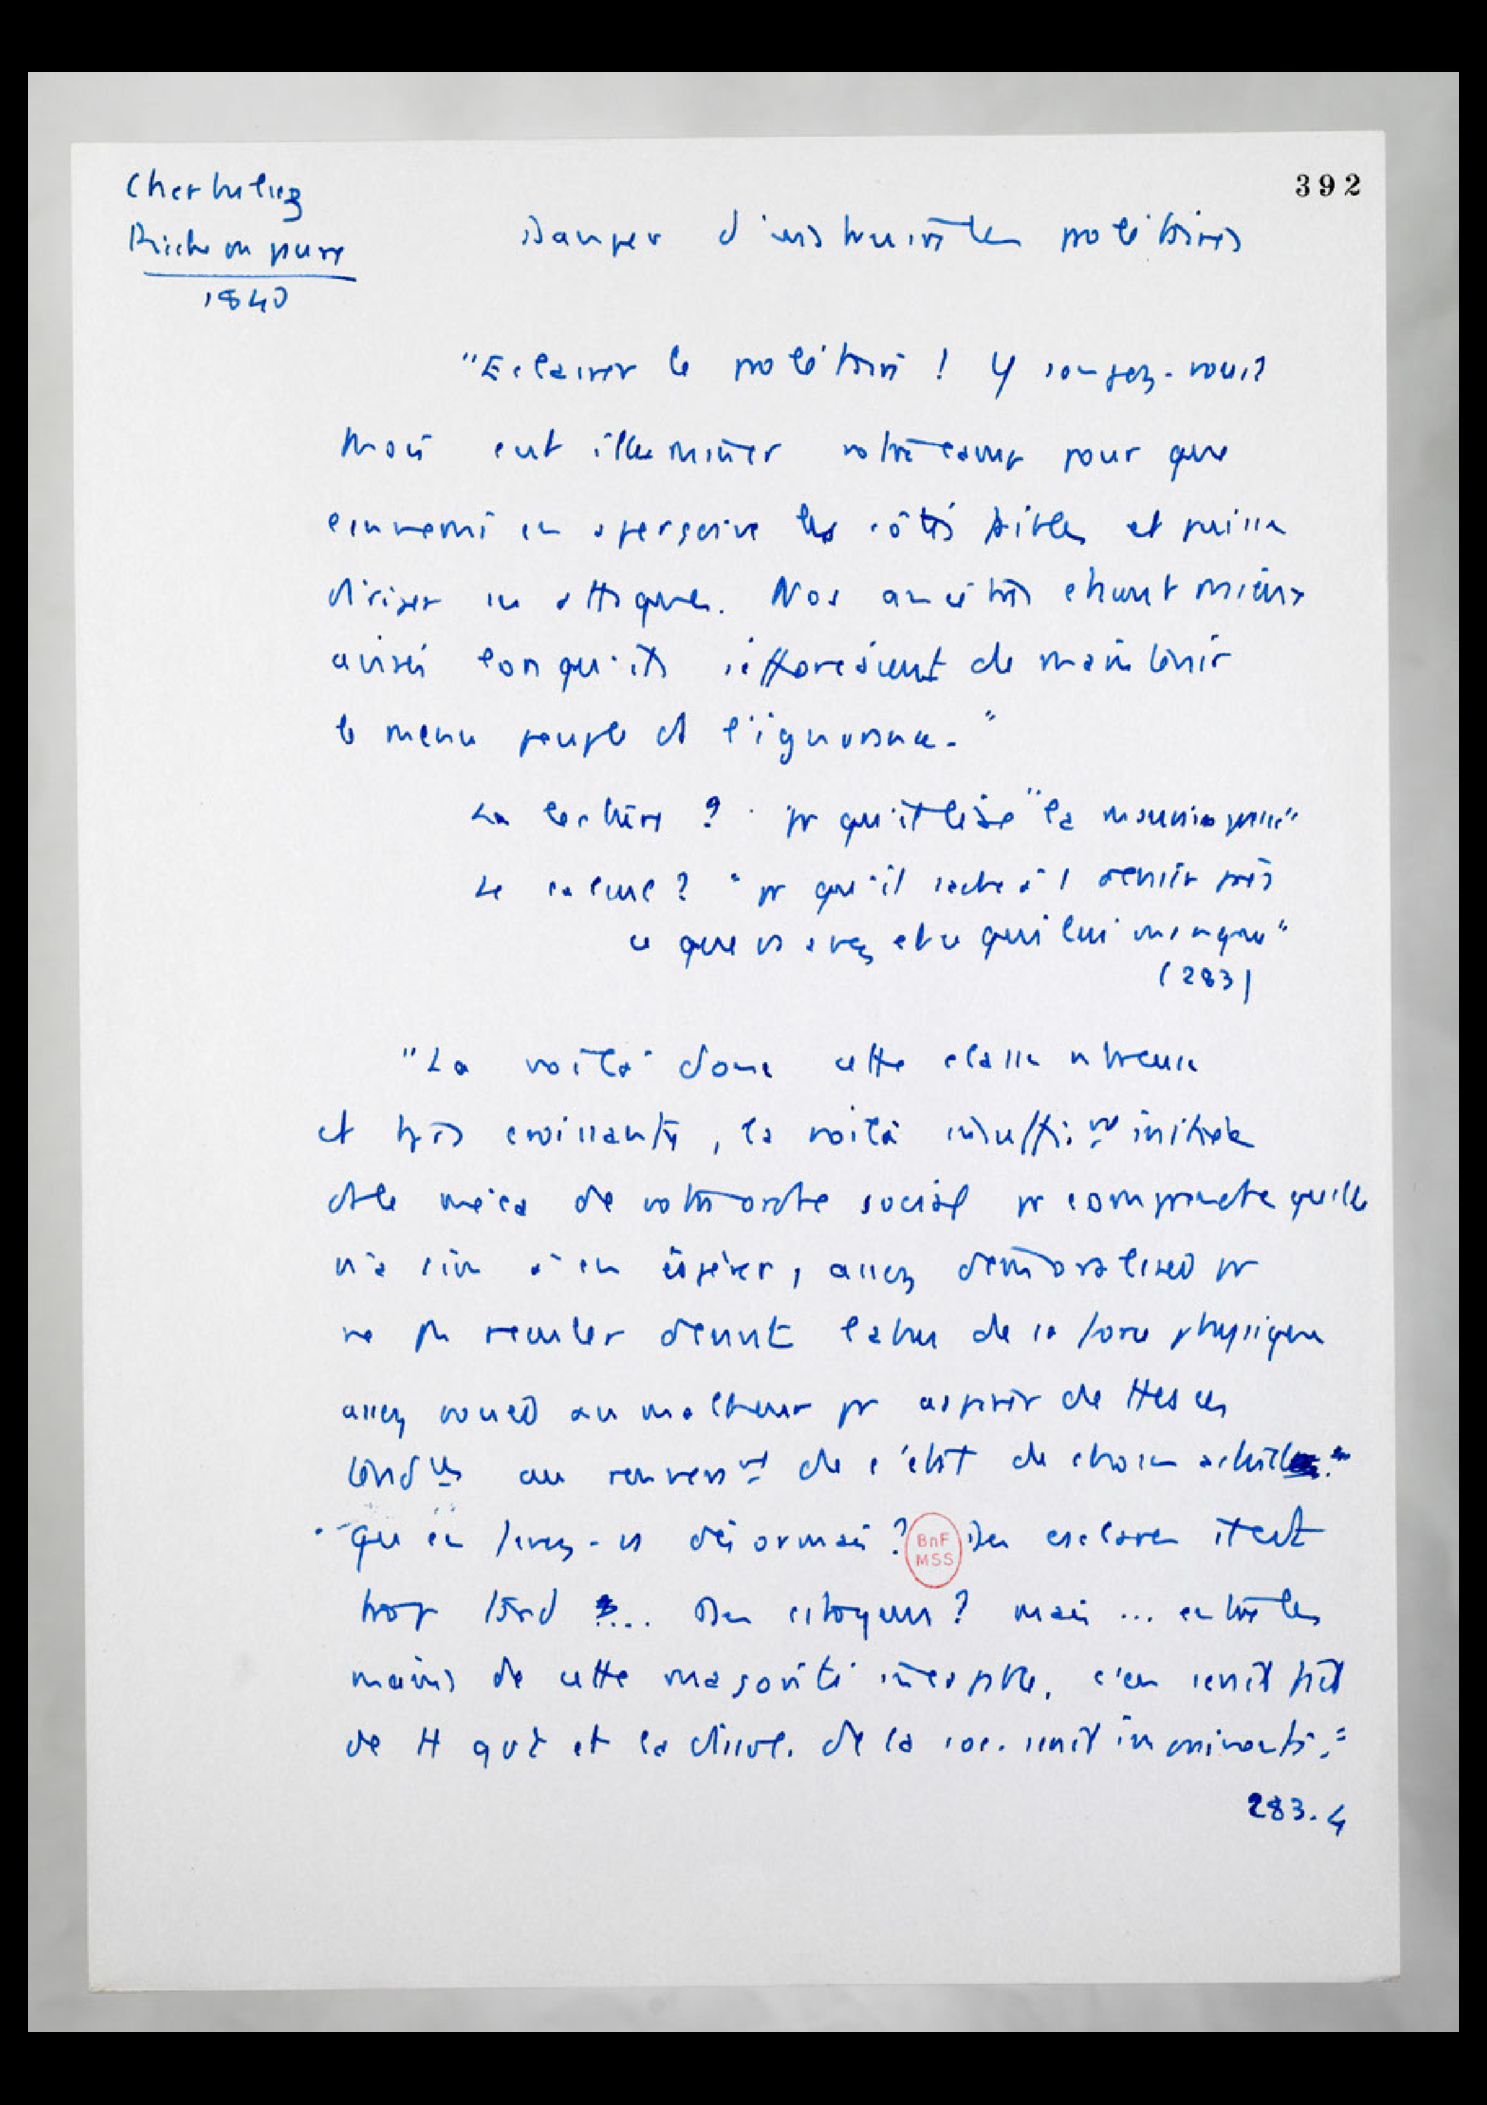 392
Cherbuliez
Riche ou pauvre
1840
Danger d'instruire les prolétaires
"Eclairer le prolétaire ! Y songez-vous ?
Mais c'est illuminer votre camp pour que
l'ennemi en aperçoive les côtés faibles et puisse
diriger ses attaques. Nos ancêtres étaient mieux
avisés lorsqu'ils s'efforçaient de maintenir
le menu peuple ds l'ignorance."
La lecture ? pr qu'il lise "la
Le calcul ? "pr qu'il sache à 1 denier près
ce que vs avez et ce qui lui manque"
(283)
"La voilà donc cette classe nbreuse
et tjs croissante, la voilà suffisamt initiée
ds le méca de votre ordre social pr comprendre qu'elle
n'a rien à en espérer, assez démoralisée pr
ne pas reculer devant l'abus de sa force physique
assez vouée au malheur pr aspirer de ttes ses
tendces au renversmt de l'état de choses actuel."
"qu'en ferez-vs désormais ? Des esclaves il est
trop tard ... Des citoyens ? mais ... entre les
mains de cette majorité incapable, c'en serait fait
de tt gvt et la dissol. de la soc. serait imminente."
283.4
BnF
MSS